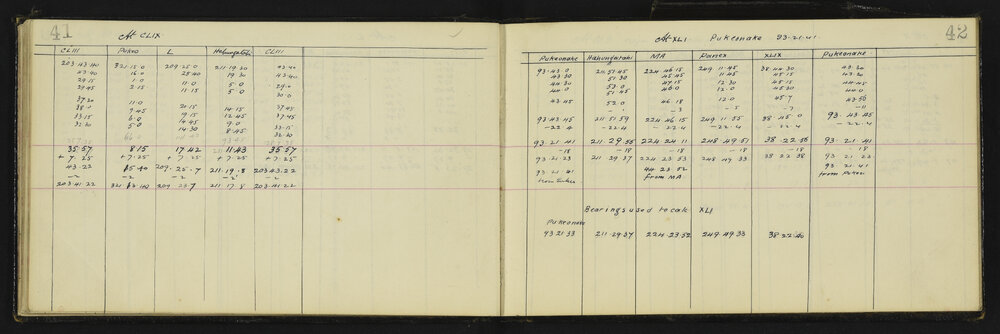 41
At CLIX
CLIII Pukeo L Hakungatahi CLIII
203.43.40 321.15.0 209.25.0 211.19.20 43.40
43.40 16.0 25.40 19.30 43.40
29.15 1.0 11.0 5.0 29.0
29.45 2.15 11.15 5.0 30.0
37.20 11.0 20.15 14.15 37.45
9.45 19.15 12.45 37.45
33.15 6.0 14.45 9.0 33.15
32.20 5.0 14.30 8.45 32.20
35.57 8.15 17.42 11.43 35.57
+7.25 +7.25 +7.25 +7.25 +7.25
43.22 15.40 209.25.7 211.19.8 203.43.22
-2 -2 -2 -2 -2
203.41.22 209.23.7 211.17.8 203.41.22
42
At XLI Pukeonake 93.21.41
Pukeonake Hakungatahi MA Paretex XLIX Pukeonake
93.43.0 211.51.45 224.46.15 249.11.45 38.44.30 43.30
43.30 51.30 45.45 11.45 45.15 43.30
44.30 53.0 47.15 12.30 45.15 44.45
44.0 51.45 46.0 12.0 45.30 44.0
43.45 52.0 46.18 12.0 45.7 43.56
-1 -3 -5 -7 -11
93.43.45 211.51.59 224.46.15 249.11.55 38.45.0 93.43.45
-22.4 -22.4 -22.4 -22.4 -22.4 -22.4
93.21.41 211.29.55 224.24.11 248.49.51 38.22.56 93.21.41
-18 -18 -18 -18 -18 -18
93.21.23 211.29.37 224.23.53 248.49.33 38.22.38 93.21.23
93.21.41 44.23.52 93.21.41
from MA from Pukeo
Bearings used to calc XLI
Pukeonake
93.21.33 211.29.37 224.23.52 249.49.33 38.22.40